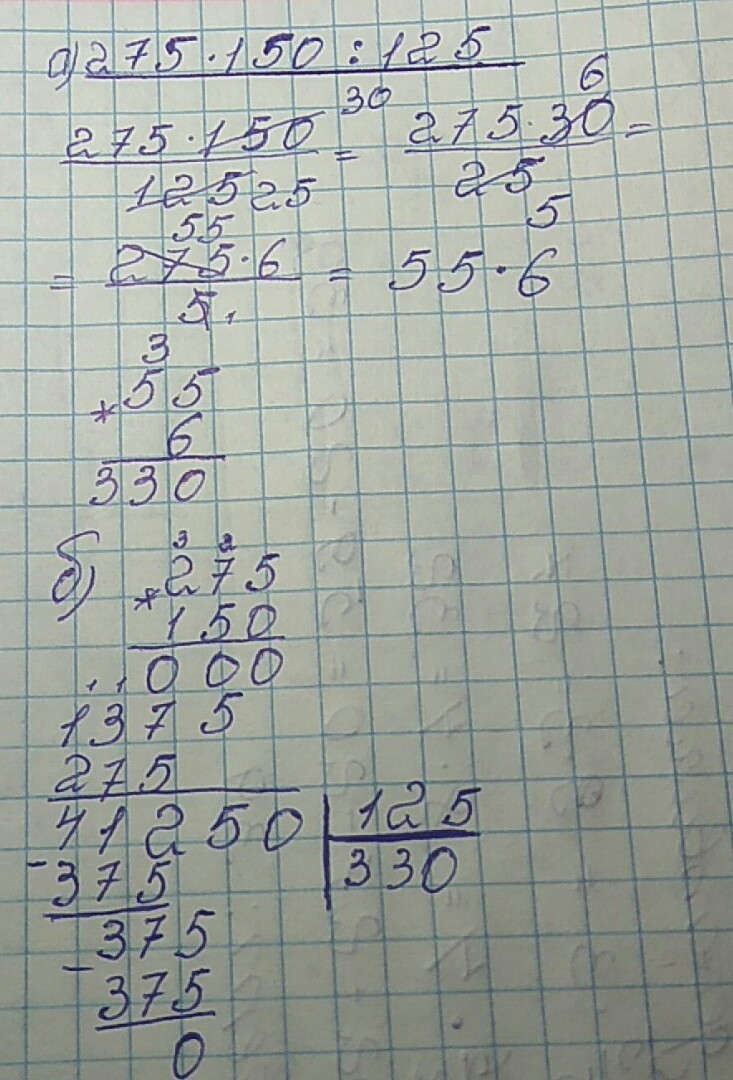 а) 275·150:125
30 6
275·150 = 275·30 =
125 25 25
55 5
= 275·6 = 55·6
5
3
* 55
6
330
б) 3 2
* 275
150
000
1375
275
41250 | 125
- 375 330
- 375
375
0